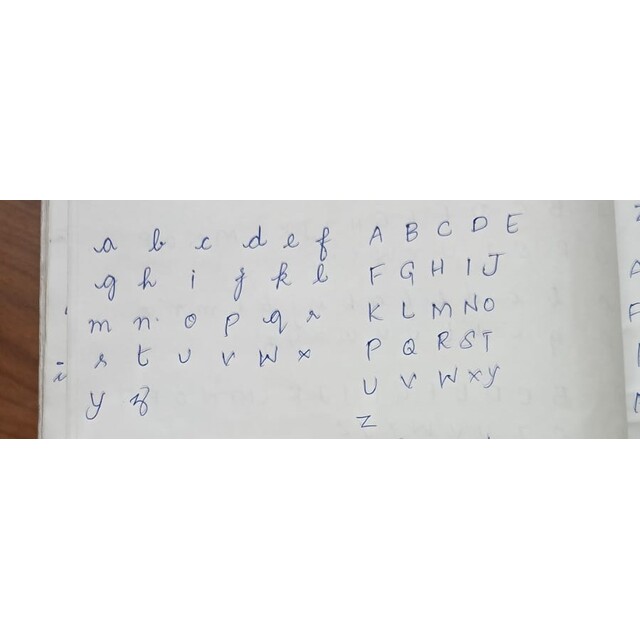 a b c d e f
g h i j k l
m n o p q r
s t u v w x
y z
A B C D E
F G H I J
K L M N O
P Q R S T
U V W X Y
Z
i